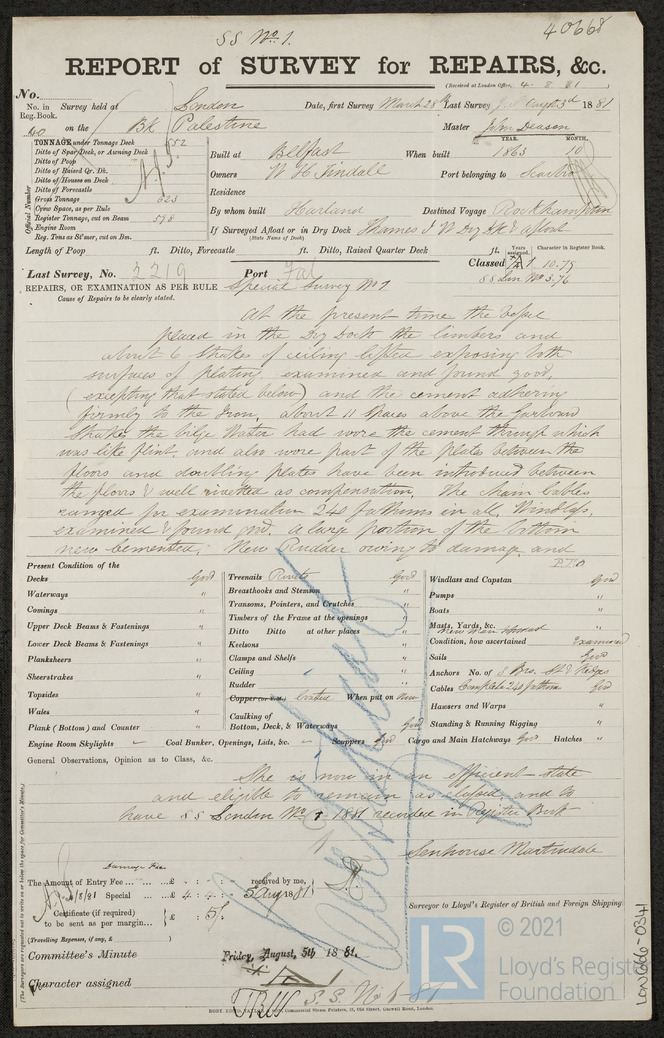 40668
SS No 1.
REPORT of SURVEY for REPAIRS, &c.
(Received at London Office, 4. 8. 81)
No.
No. in Reg. Book. Survey held at London Date, first Survey March 28th Last Survey Augt 3rd 1881
40 on the Bk Palestine Master John Deason
TONNAGE under Tonnage Deck 552
Ditto of Spar Deck, or Awning Deck
Ditto of Poop
Ditto of Raised Qr. Dk.
Ditto of Houses on Deck
Ditto of Forecastle
Gross Tonnage 623
Crew Space, as per Rule
Register Tonnage, cut on Beam 598
Engine Room
Reg. Tons as St'mer, cut on Bm.
Official Number
Built at Belfast When built YEAR. 1863 MONTH. 10
Owners W H Tindall Port belonging to Scarbro
Residence
By whom built Harland Destined Voyage Rockhampton
If Surveyed Afloat or in Dry Dock Thames I W Dry Dk & afloat
(State Name of Dock)
Length of Poop ft. Ditto, Forecastle ft. Ditto, Raised Quarter Deck ft.
Years assigned. Character in Register Book.
Last Survey, No. 2219 Port Fal Classed 1 10.75
SS Lon No 3.76
REPAIRS, OR EXAMINATION AS PER RULE Special Survey No 1
Cause of Repairs to be clearly stated.
At the present time the vessel
placed in the Dry Dock the limbers and
about 6 strakes of ceiling lifted exposing both
surfaces of plating, examined and found good,
(excepting that stated below) and the cement adhering
firmly to the Iron, about 11 spaces above the Garboard
Strakes the bilge water had wore the cement through which
was like flint, and also wore part of the plates between the
floors and doubling plates have been introduced between
the floors & well rivetted as compensation. The chain Cables
ranged for examination 240 fathoms in all, Windlass,
examined & found good. a large portion of the bottom
new cemented. New Rudder owing to damage and
P.T.O
Present Condition of the
Decks Good
Waterways "
Comings "
Upper Deck Beams & Fastenings "
Lower Deck Beams & Fastenings "
Planksheers "
Sheerstrakes "
Topsides "
Wales "
Plank (Bottom) and Counter "
Treenails Rivets Good
Breasthooks and Stemson "
Transoms, Pointers, and Crutches "
Timbers of the Frame at the openings "
Ditto Ditto at other places "
Keelsons "
Clamps and Shelfs "
Ceiling "
Rudder "
Copper Coated When put on Now
Caulking of Bottom, Deck, & Waterways Good
Windlass and Capstan Good
Pumps "
Boats "
Masts, Yards, &c. "
New Main
Condition, how ascertained Examined
Sails Good
Anchors No. of 3 Brs. St & Kedges
Cables Complete 240 fathom Good
Hawsers and Warps "
Standing & Running Rigging "
Engine Room Skylights Coal Bunker, Openings, Lids, &c. Scuppers Good Cargo and Main Hatchways Good Hatches "
General Observations, Opinion as to Class, &c.
She is now in an efficient state
and eligible to remain as classed and to
have SS London No 1 1881 recorded in Register Book
Senhouse Martindale
Surveyor to Lloyd's Register of British and Foreign Shipping.
Damage Fee
The Amount of Entry Fee £ : : received by me,
Special £ 4 : 4 : 5 Aug 1881
Certificate (if required) to be sent as per margin £ : 5/ :
(Travelling Expenses, if any, £ )
Committee's Minute Friday, August, 5th 1881.
Character assigned
S.S. No 1-81
(The Surveyors are requested not to write on or below the space for Committee's Minute.)
LON666-0341
© 2021
LR
Lloyd's Register
Foundation